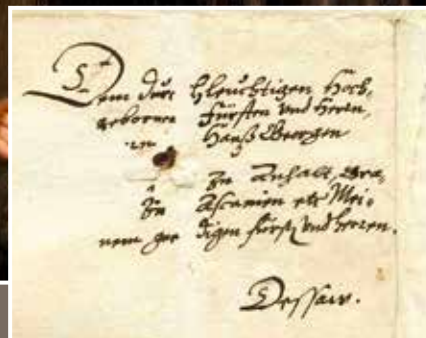 Dem durchleuchtigen Hoch,
gebornen Fürsten vnd Herrn,
Hanß Georgen
zu Anhalt, Gra,
zu Ascanien etc Mei,
nem gne digen fürst, vnd herren.
Dessaw.